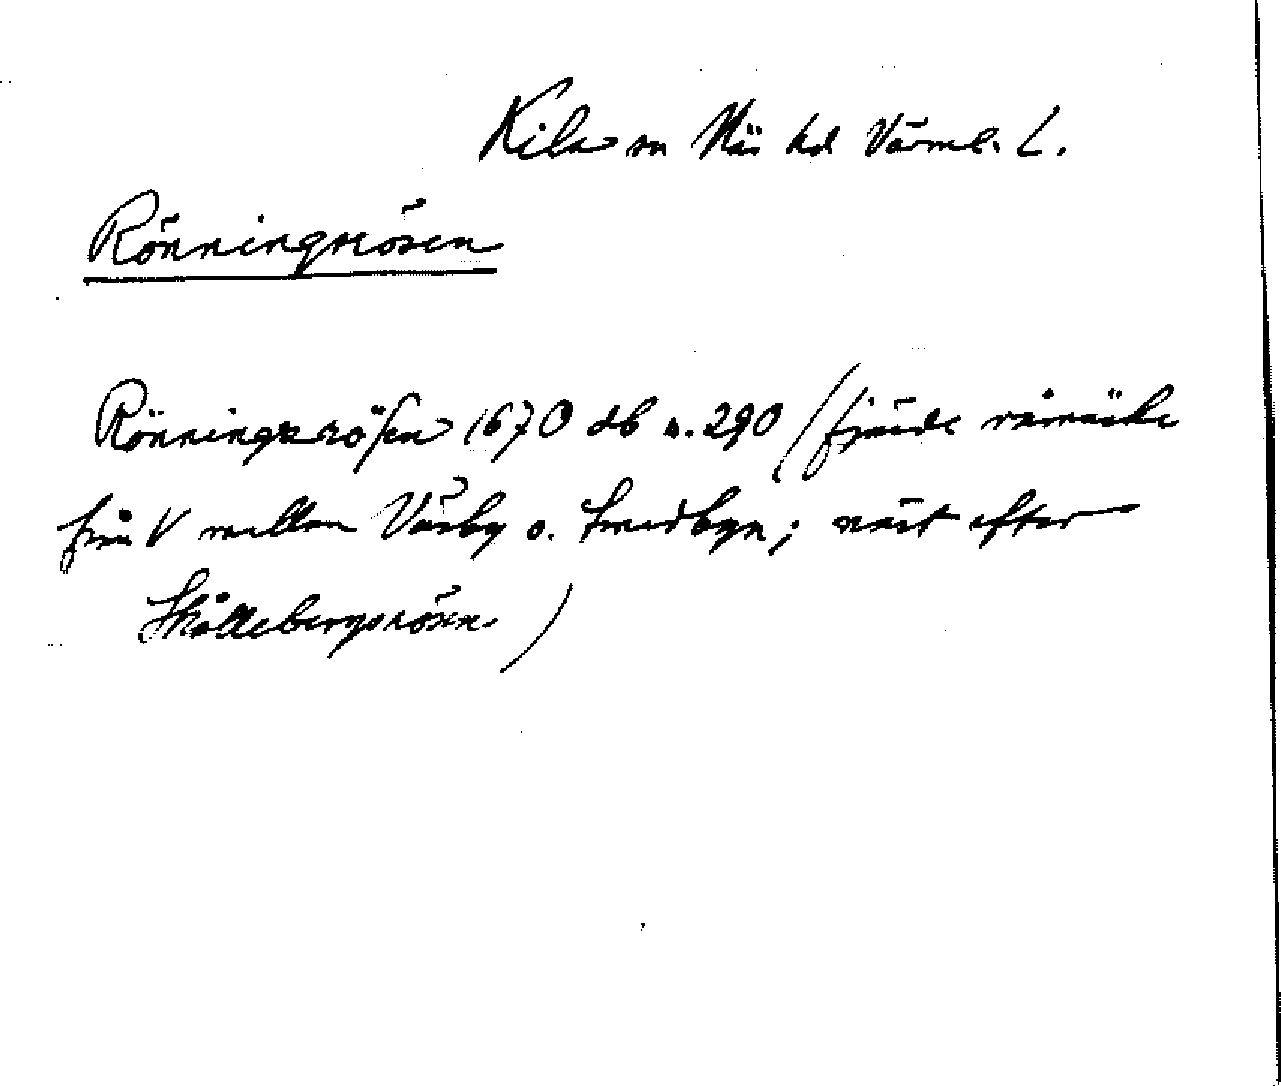 Kila sn Näs hd Värml. L.
Rönningsrösen
Rönningzrösen 1670 db n. 290 (fjärde råmärke
från V mellan Vårby o. Smedbyn; näst efter
Skållebergsrösen)